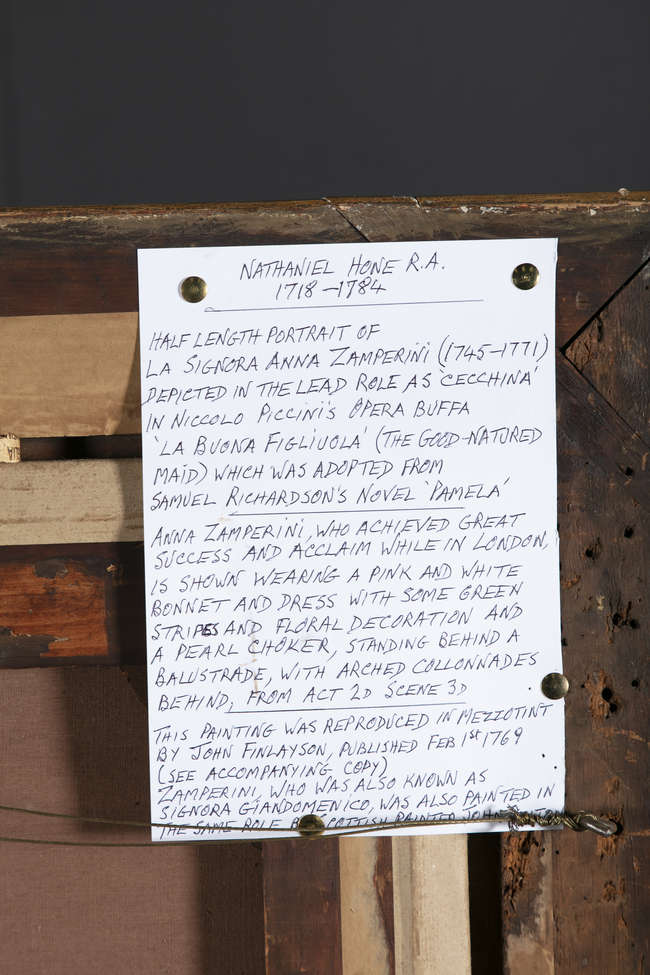 NATHANIEL HONE R.A.
1718-1784
HALF LENGTH PORTRAIT OF
LA SIGNORA ANNA ZAMPERINI (1745-1771)
DEPICTED IN THE LEAD ROLE AS 'CECCHINA'
IN NICCOLO PICCINI'S OPERA BUFFA
'LA BUONA FIGLIUOLA' (THE GOOD-NATURED
MAID) WHICH WAS ADOPTED FROM
SAMUEL RICHARDSON'S NOVEL 'PAMELA'
ANNA ZAMPERINI, WHO ACHIEVED GREAT
SUCCESS AND ACCLAIM WHILE IN LONDON,
IS SHOWN WEARING A PINK AND WHITE
BONNET AND DRESS WITH SOME GREEN
STRIPES AND FLORAL DECORATION AND
A PEARL CHOKER, STANDING BEHIND A
BALUSTRADE, WITH ARCHED COLLONNADES
BEHIND, FROM ACT 2D SCENE 3D
THIS PAINTING WAS REPRODUCED IN MEZZOTINT
BY JOHN FINLAYSON, PUBLISHED FEB 1st 1769
(SEE ACCOMPANYING COPY)
ZAMPERINI, WHO WAS ALSO KNOWN AS
SIGNORA GIANDOMENICO, WAS ALSO PAINTED IN
THE SAME ROLE SCOTTISH PAINTED JOHN